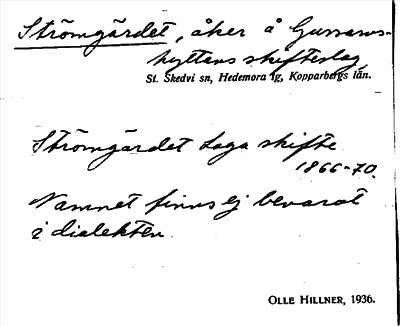 Strömgärdet, åker å Gussarvs-
hyttans skifteslag,
St. Skedvi sn, Hedemora tg, Kopparbergs län.
Strömgärdet Laga skifte
1866-70.
Namnet finns ej bevarat
i dialekten.
OLLE HILLNER, 1936.